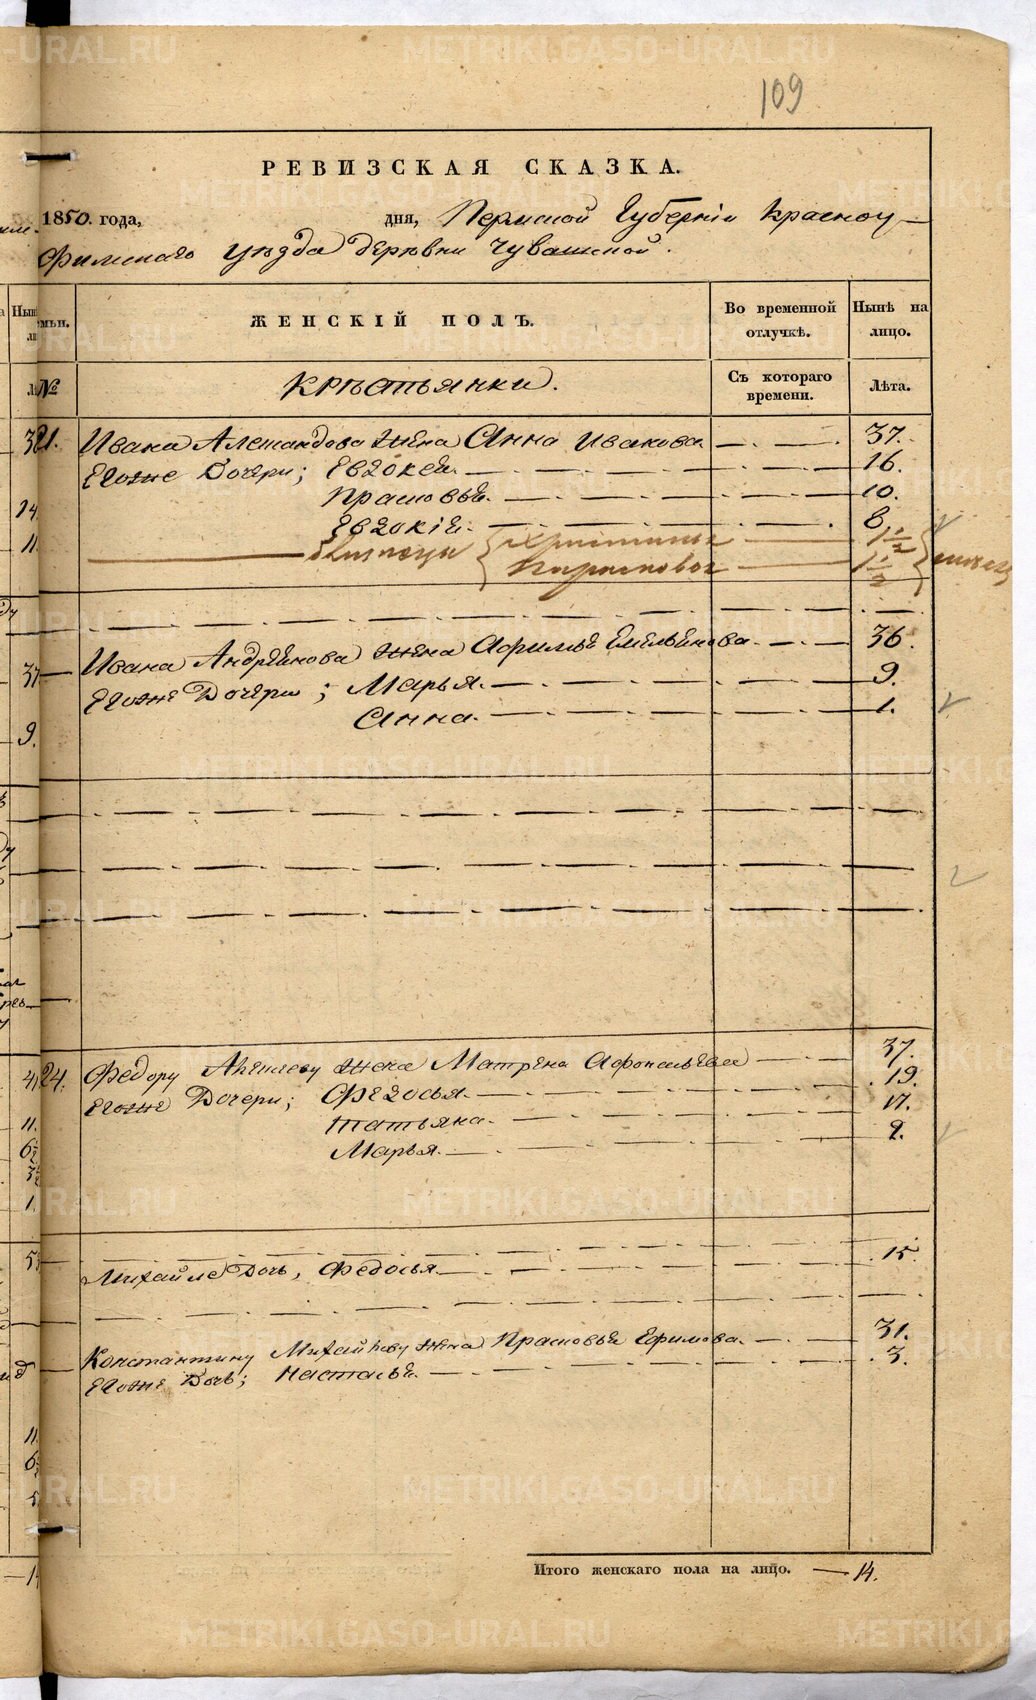 109
РЕВИЗСКАЯ СКАЗКА.
1850. года, дня, Пермской Губерніи Красноу-
фимскаго Уѣзда Деревни Чувашской.
ЖЕНСКІЙ ПОЛЪ.
Во временной отлучкѣ.
Нынѣ на лицо.
№
Крѣстьянки.
Съ котораго времени.
Лѣта.
21. Ивана Александрова жена Анна Иванова — 37.
Егоже Дочери; Евдокея. — 16.
Прасковья. — 10.
Евдокія. — 8
Христинья 1½
1½
Ивана Андреянова жена Афимья Емельянова — 36.
Егоже Дочери; Марья. — 9.
Анна. — 1.
24. Федору жена Матрена — 37.
Егоже Дочери; Федосья. — 19.
Татьяна. — 17.
Марья. — 9.
Михайле Дочь, Федосья — 15.
Константину Михайлову жена Прасковья Ефимова. — 31.
Егоже Дочь; Настасья. — 3.
Итого женскаго пола на лицо. — 14.
METRIKI.GASO-URAL.RU